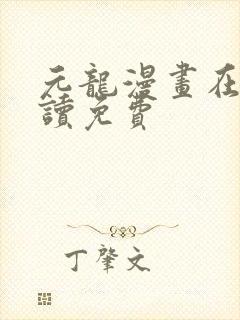 元龍漫畫在
讀免費
丁肇文